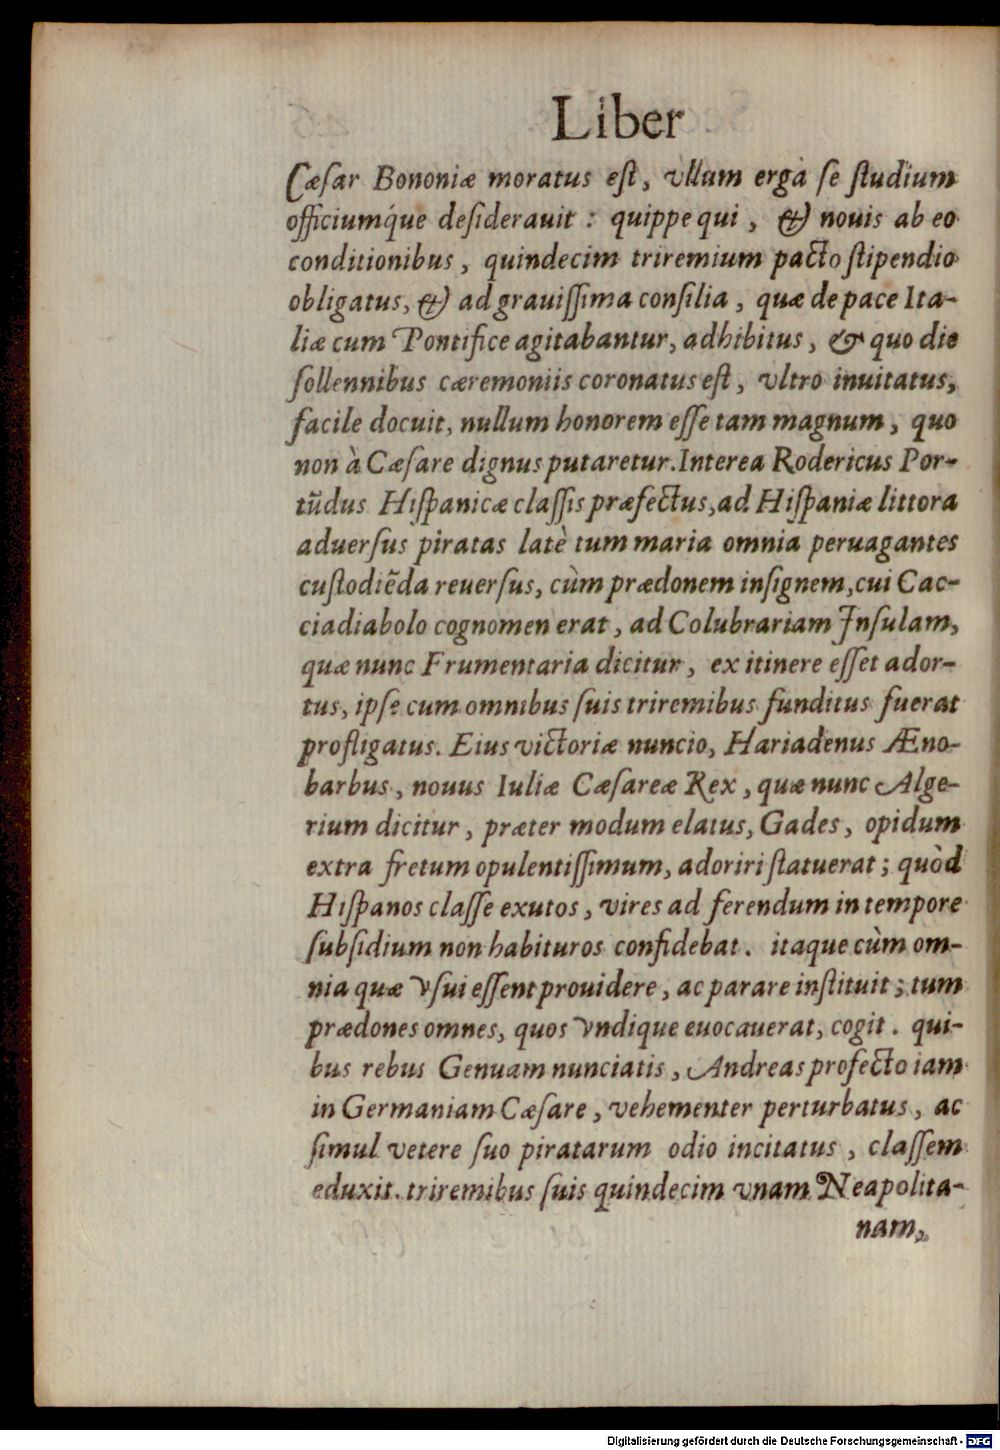 Liber
Cæſar Bononiæ moratus eſt, vllum ergà ſe ſtudium
officiumq́ue deſiderauit : quippe qui, & nouis ab eo
conditionibus, quindecim triremium pacto ſtipendio
obligatus, & ad grauiſſima conſilia, quæ de pace Ita-
liæ cum Pontifice agitabantur, adhibitus, & quo die
ſollennibus cæremoniis coronatus eſt, vltro inuitatus,
facile docuit, nullum honorem eſſe tam magnum, quo
non à Cæſare dignus putaretur. Interea Rodericus Por-
tũdus Hiſpanicæ claſſis præfectus, ad Hiſpaniæ littora
aduerſus piratas latè tum maria omnia peruagantes
cuſtodiẽda reuerſus, cùm prædonem inſignem, cui Cac-
ciadiabolo cognomen erat, ad Colubrariam Inſulam,
quæ nunc Frumentaria dicitur, ex itinere eſſet ador-
tus, ipſe cum omnibus ſuis triremibus funditus fuerat
profligatus. Eius victoriæ nuncio, Hariadenus Æno-
barbus, nouus Iuliæ Cæſareæ Rex, quæ nunc Alge-
rium dicitur, præter modum elatus, Gades, opidum
extra fretum opulentiſſimum, adoriri ſtatuerat; quòd
Hiſpanos claſſe exutos, vires ad ferendum in tempore
ſubſidium non habituros confidebat. itaque cùm om-
nia quæ vſui eſſent prouidere, ac parare inſtituit; tum
prædones omnes, quos vndique euocauerat, cogit. qui-
bus rebus Genuam nunciatis, Andreas profecto iam
in Germaniam Cæſare, vehementer perturbatus, ac
ſimul vetere ſuo piratarum odio incitatus, claſſem
eduxit. triremibus ſuis quindecim vnam Neapolita-
nam,
Digitalisierung gefördert durch die Deutsche Forschungsgemeinschaft - DFG